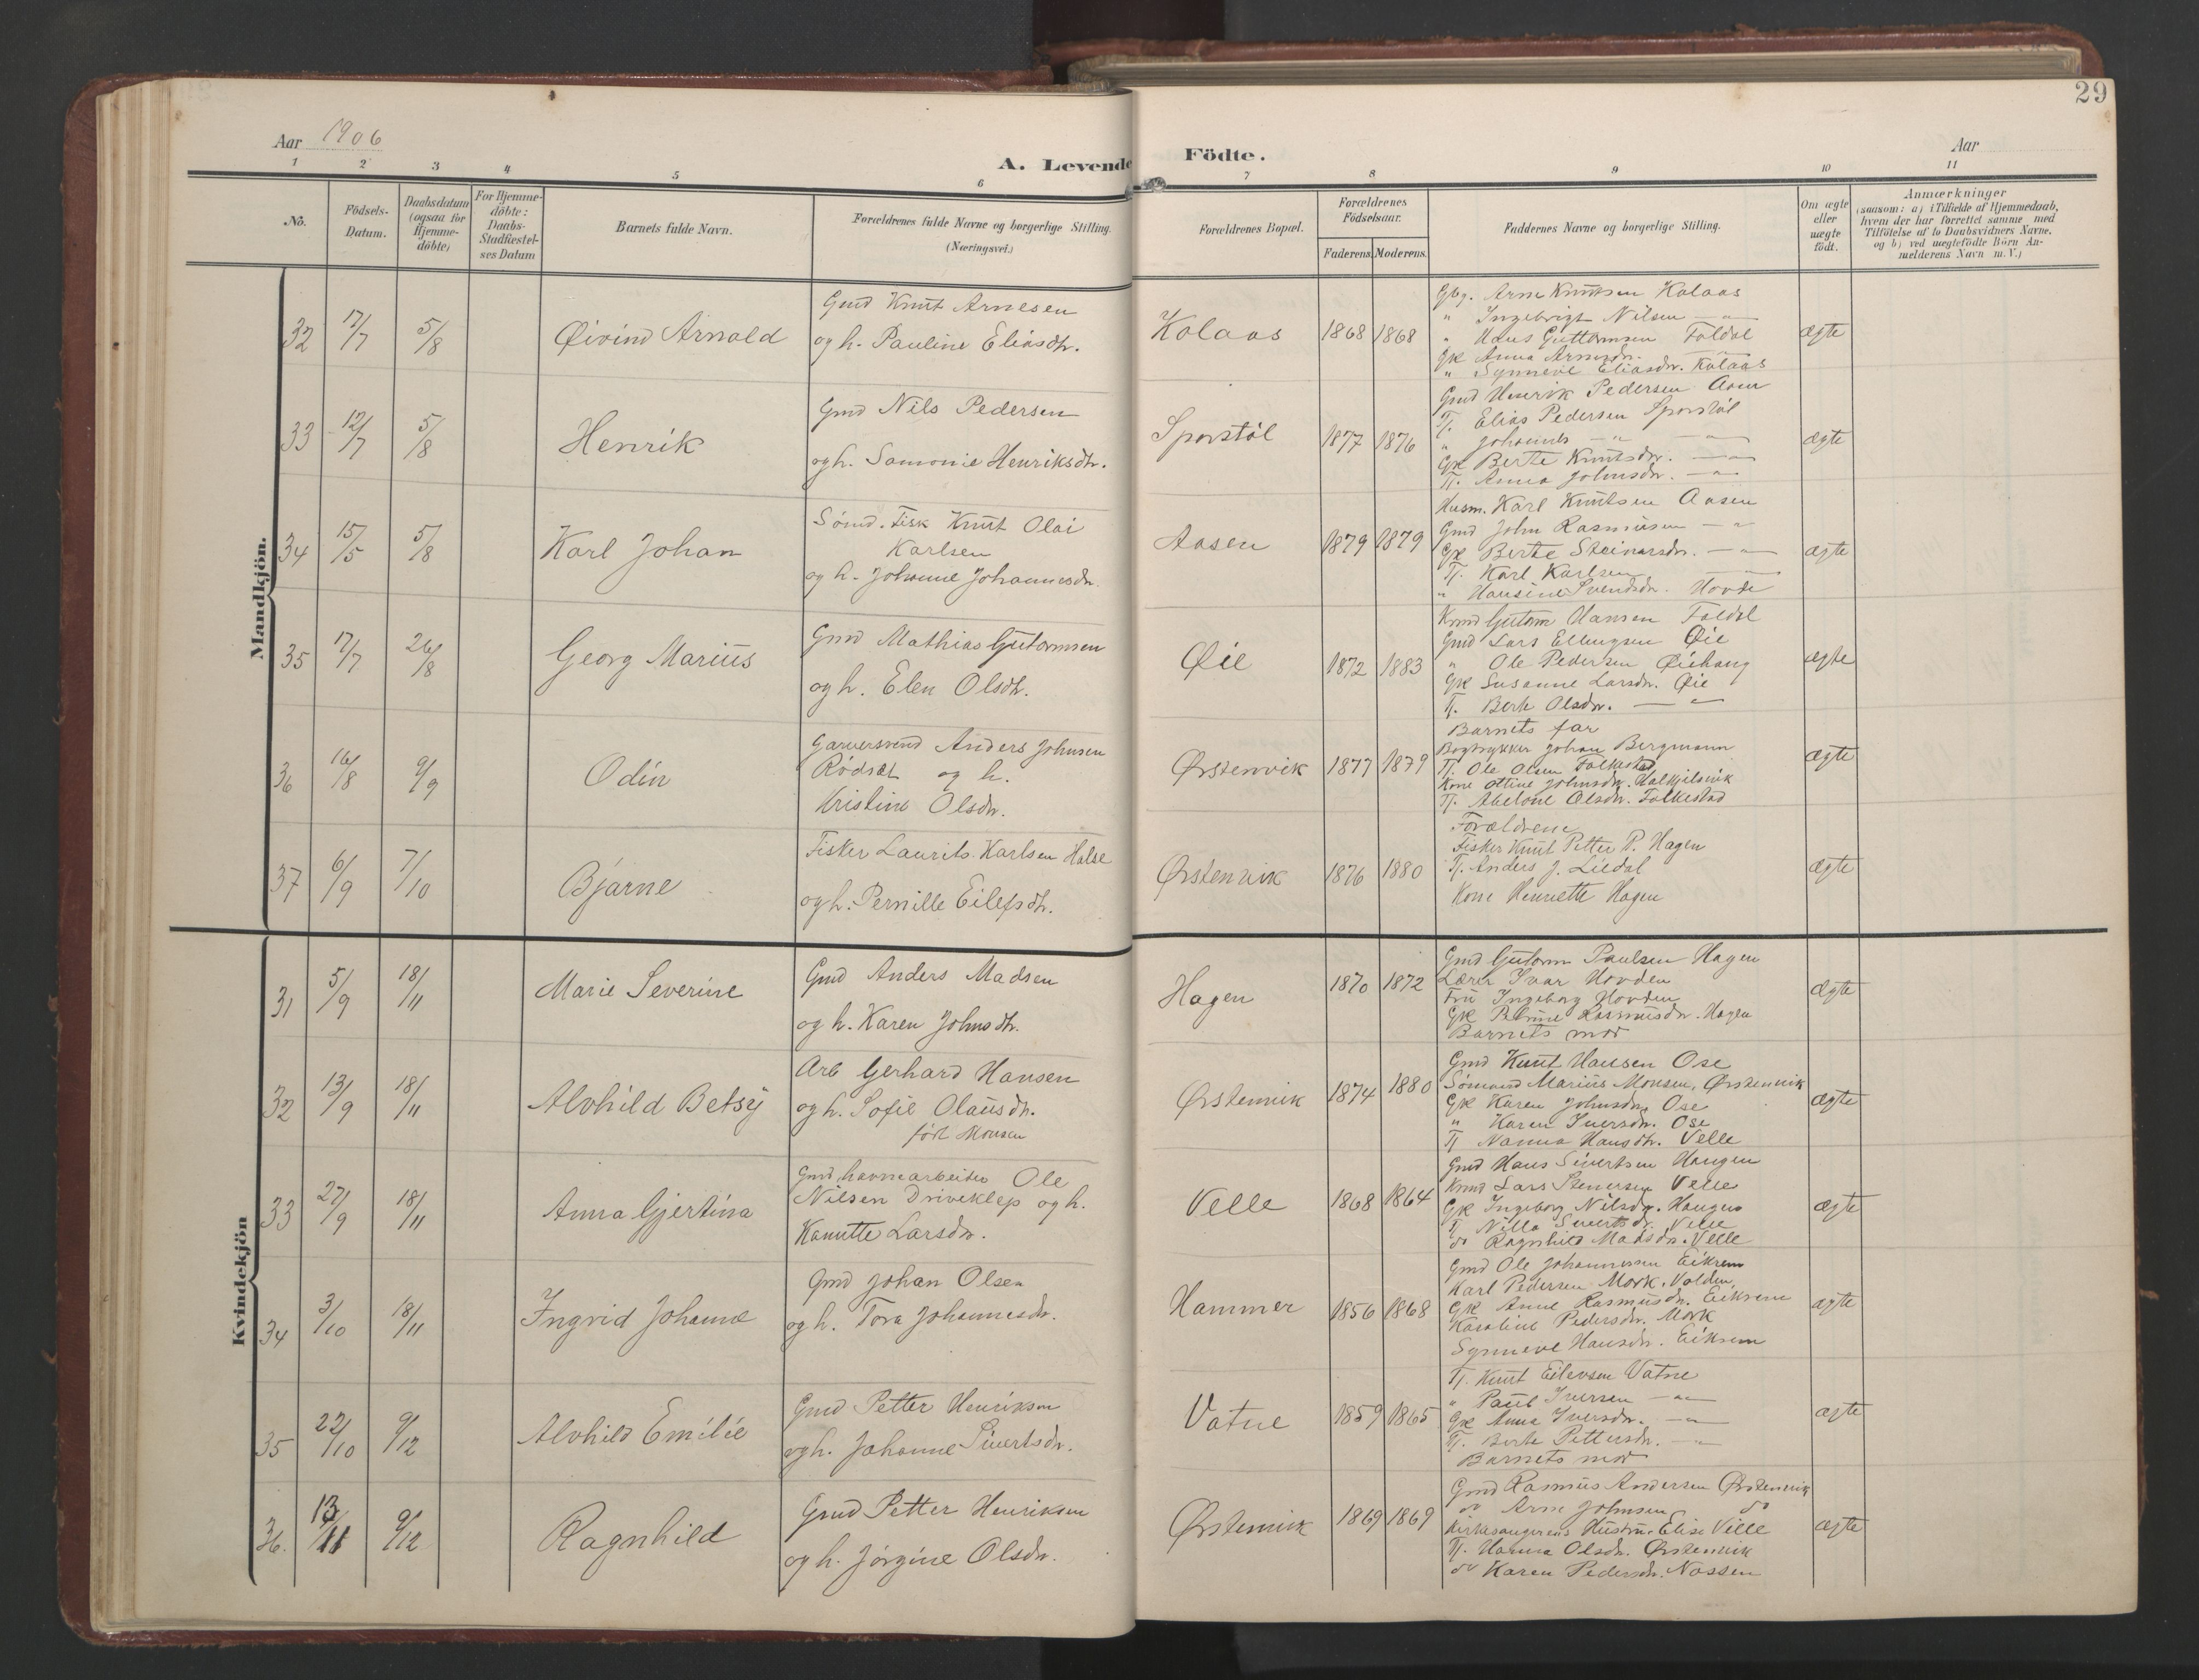 29
Aar 1906
A. Levende Födte.
Aar
1 2 3 4 5 6 7 8 9 10 11
No.
Födsels-Datum.
Daabsdatum (ogsaa for Hjemme-döbte)
For Hjemme-döbte: Daabs-Stadfæstel-ses Datum
Barnets fulde Navn.
Forældrenes fulde Navne og borgerlige Stilling. (Næringsvei.)
Forældrenes Bopæl.
Forældrenes Födselsaar.
Faderens. Moderens.
Faddernes Navne og borgerlige Stilling.
Om ægte eller uægte födt.
Anmærkninger
(saasom: a) i Tilfælde af Hjemmedaab,
hvem der har forrettet samme med
Tilföielse af to Daabsvidners Navne,
og b) ved uægtefödte Börn An-
melderens Navn m. V.)
Mandkjön.
32 17/7 5/8 Øivind Arnold
Gmd Knut Arnesen
og h. Pauline Eliasdtr.
Kolaas 1868 1868
Gbg. Arne Knutsen Kolaas
" Ingebrigt Nilsen — " —
" Hans Guttormsen Foldal
Gk Anna Arnesdr.
" Synneve Eliasdr. Kolaas
ægte
33 12/7 5/8 Henrik
Gmd Nils Pedersen
og h. Samonie Henriksdtr.
Sporstöl 1877 1876
Gmd Henrik Pedersen Aam
Tj. Elias Pedersen Sporstöl
" Johannes — " — — " —
Gk Berte Knutsdr. — " —
Tj. Anna Johnsdr — " —
ægte
34 15/5 5/8 Karl Johan
Sömd. Fisk Knut Olai
Karlsen
og h. Johanne Johannesdr.
Aasen 1879 1879
Husm. Karl Knutsen Aasen
Gmd John Rasmusen — " —
Gk Berte Steinarsdr. — " —
Tj. Karl Karlsen
" Hansine Svendsdr. Hovde
ægte
35 17/7 26/8 Georg Marius
Gmd Mathias Gutormsen
og h. Elen Olsdtr.
Øie 1872 1883
Kmd Gutorm Hansen Foldal
Gmd Lars Ellingsen Øie
" Ole Pedersen Øiehaug
Gk Susanne Larsdr. Øie
Tj. Berte Olsdr. — " —
ægte
36 16/8 9/9 Odin
Garversvend Anders Johnsen
Rödset og h.
Kristine Olsdr.
Ørstenvik 1877 1879
Barnets far
Bogtrykker Johan Bergmann
Tj. Ole Olsen Folkestad
Kone Ottine Johnsdr. Halkjelsvik
Tj. Abelone Olsdr. Folkestad
ægte
37 6/9 7/10 Bjarne
Fisker Laurits Karlsen Halse
og h. Pernille Eilefsdtr.
Ørstenvik 1876 1880
Forældrene
Fisker Knut Petter P. Hagen
Tj. Anders J. Liedal
Kone Henriette Hagen
ægte
Kvindekjön
31 5/9 18/11 Marie Severine
Gmd Anders Madsen
og h. Karen Johnsdtr.
Hagen 1870 1872
Gmd Gutorm Paulsen Hagen
Lærer Ivar Hovden
Fru Ingeborg Hovden
Gk Rasmusdr. Hagen
Barnets mor
ægte
32 13/9 18/11 Alvhild Betsy
Arb Gerhard Hansen
og h. Sofie Olausdr.
född Monsen
Ørstenvik 1874 1880
Gmd Knut Hansen Ose
Sömand Marius Monsen, Ørstenvik
Gk Karen Johnsdr. Ose
" Karen Iversdr. Ose
Tj Nanna Hansdtr. Velle
ægte
33 27/9 18/11 Anna Gjertina
Gmd havnearbeider Ole
Nilsen Driveklep og h.
Kanutte Larsdr.
Velle 1868 1864
Gmd Hans Sivertsen Haugen
Kmd Lars Stenersen Velle
Gk Ingeborg Nilsdr. Haugen
Tj Nilla Sivertsdr. Velle
do Ragnhild Madsdr. Velle
ægte
34 3/10 18/11 Ingrid Johanne
Gmd Johan Olsen
og h. Tora Johannesdr.
Hammer 1856 1868
Gmd Ole Johannessen Eikrem
Karl Pedersen Mork. Volden
Gk Anne Rasmusdr. Eikrem
Karoline Pedersdr. Mork
Synneve Hansdr. Eikrem
ægte
35 22/10 9/12 Alvhild Emilie
Gmd Petter Henriksen
og h. Johanne Sivertsdr.
Vatne 1859 1865
Tj. Knut Eilevsen Vatne
" Paul Iversen — " —
Gk Anna Iversdr. — " —
Tj. Berte Pettersdr. — " —
Barnets mor
ægte
36. 13/11 9/12 Ragnhild
Gmd Petter Henriksen
og h. Jörgine Olsdr.
Ørstenvik 1869 1869
Gmd Rasmus Andersen Ørstenvik
do Arne Johnsen do
Kirkesangerens Hustru Elise Velle
Tj. Hanna Olsdr. Ørstenvik
do Karen Pedersdr. Nossen
ægte